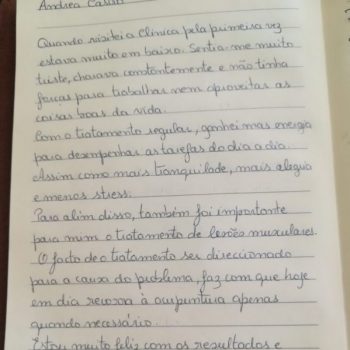 Andrea Casais
Quando visitei a Clínica pela primeira vez
estava muito em baixo. Sentia-me muito
triste, chorava constantemente e não tinha
forças para trabalhar nem aproveitar as
coisas boas da vida.
Com o tratamento regular, ganhei mas energia
para desempenhar as tarefas do dia a dia.
Assim como mais tranquilidade, mais alegria
e menos stress.
Para além disso, também foi importante
para mim o tratamento de lesões musculares.
O facto de o tratamento ser direccionado
para a causa do problema, faz com que hoje
em dia recorra à acupuntura apenas
quando necessário.
Estou muito feliz com os resultados e